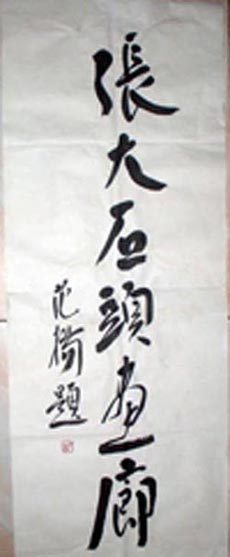 張大石頭畫廊
范揚題